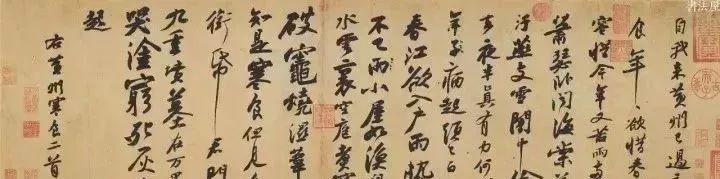 书法屋
自我來黃州已過三
食年〻欲惜春
容惜今年又苦雨兩
蕭瑟卧聞海棠
污燕支雪闇中偷
夜半真有力何
年子病起頭已白
春江欲入戶雨勢
不已雨小屋如漁
水雲裏空庖煑寒
破竈燒濕葦
知是寒食但見
銜帋君門
九重墳墓在万里
哭塗窮死灰
起
右黃州寒食二首